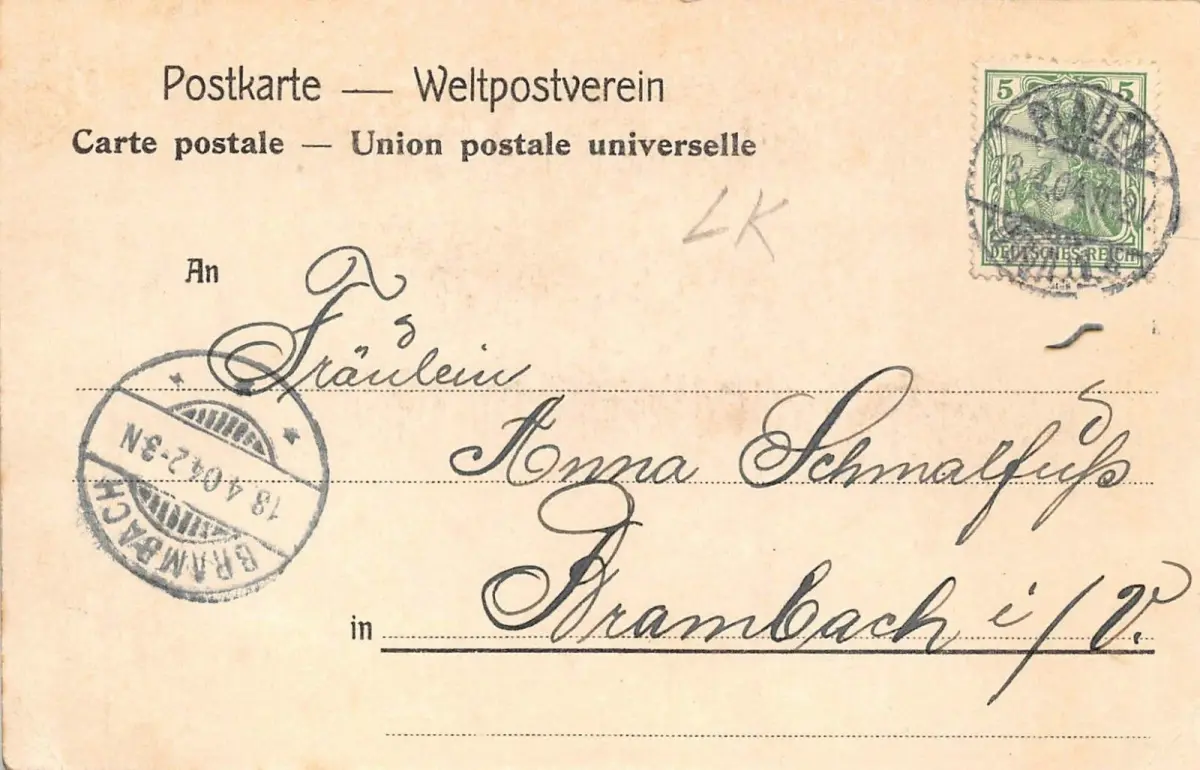 Postkarte — Weltpostverein
Carte postale — Union postale universelle
5 5
PLAUEN
DEUTSCHES REICH
LK
An
Fräulein
Anna Schmalfuß
BRAMBACH
18.4.04.2-3N
in Brambach i/V.